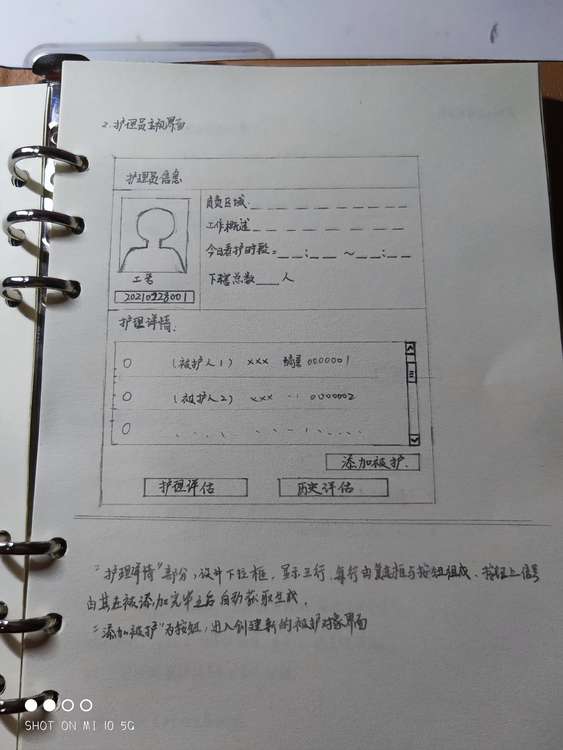 2.护理员主视界面
护理员信息
负责区域.
工作概述
今日看护时段: __:__ ~ __:__
工号
下辖总数___人
20210928001
护理详情.
(被护人1) xxx 编号 0000001
(被护人2) xxx 0000002
添加被护.
护理评估
历史评估
"护理详情"部分,设计下拉框,显示三行,每行由复选框与按钮组成、按钮上信号
由其在被添加完毕之后自动获取生成.
"添加被护"为按钮,进入创建新的被护对象界面
SHOT ON MI 10 5G